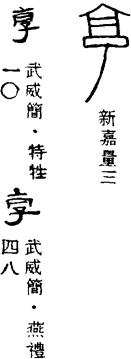 新嘉量三
享
武威簡·特牲
一〇
武威簡·燕禮
四八